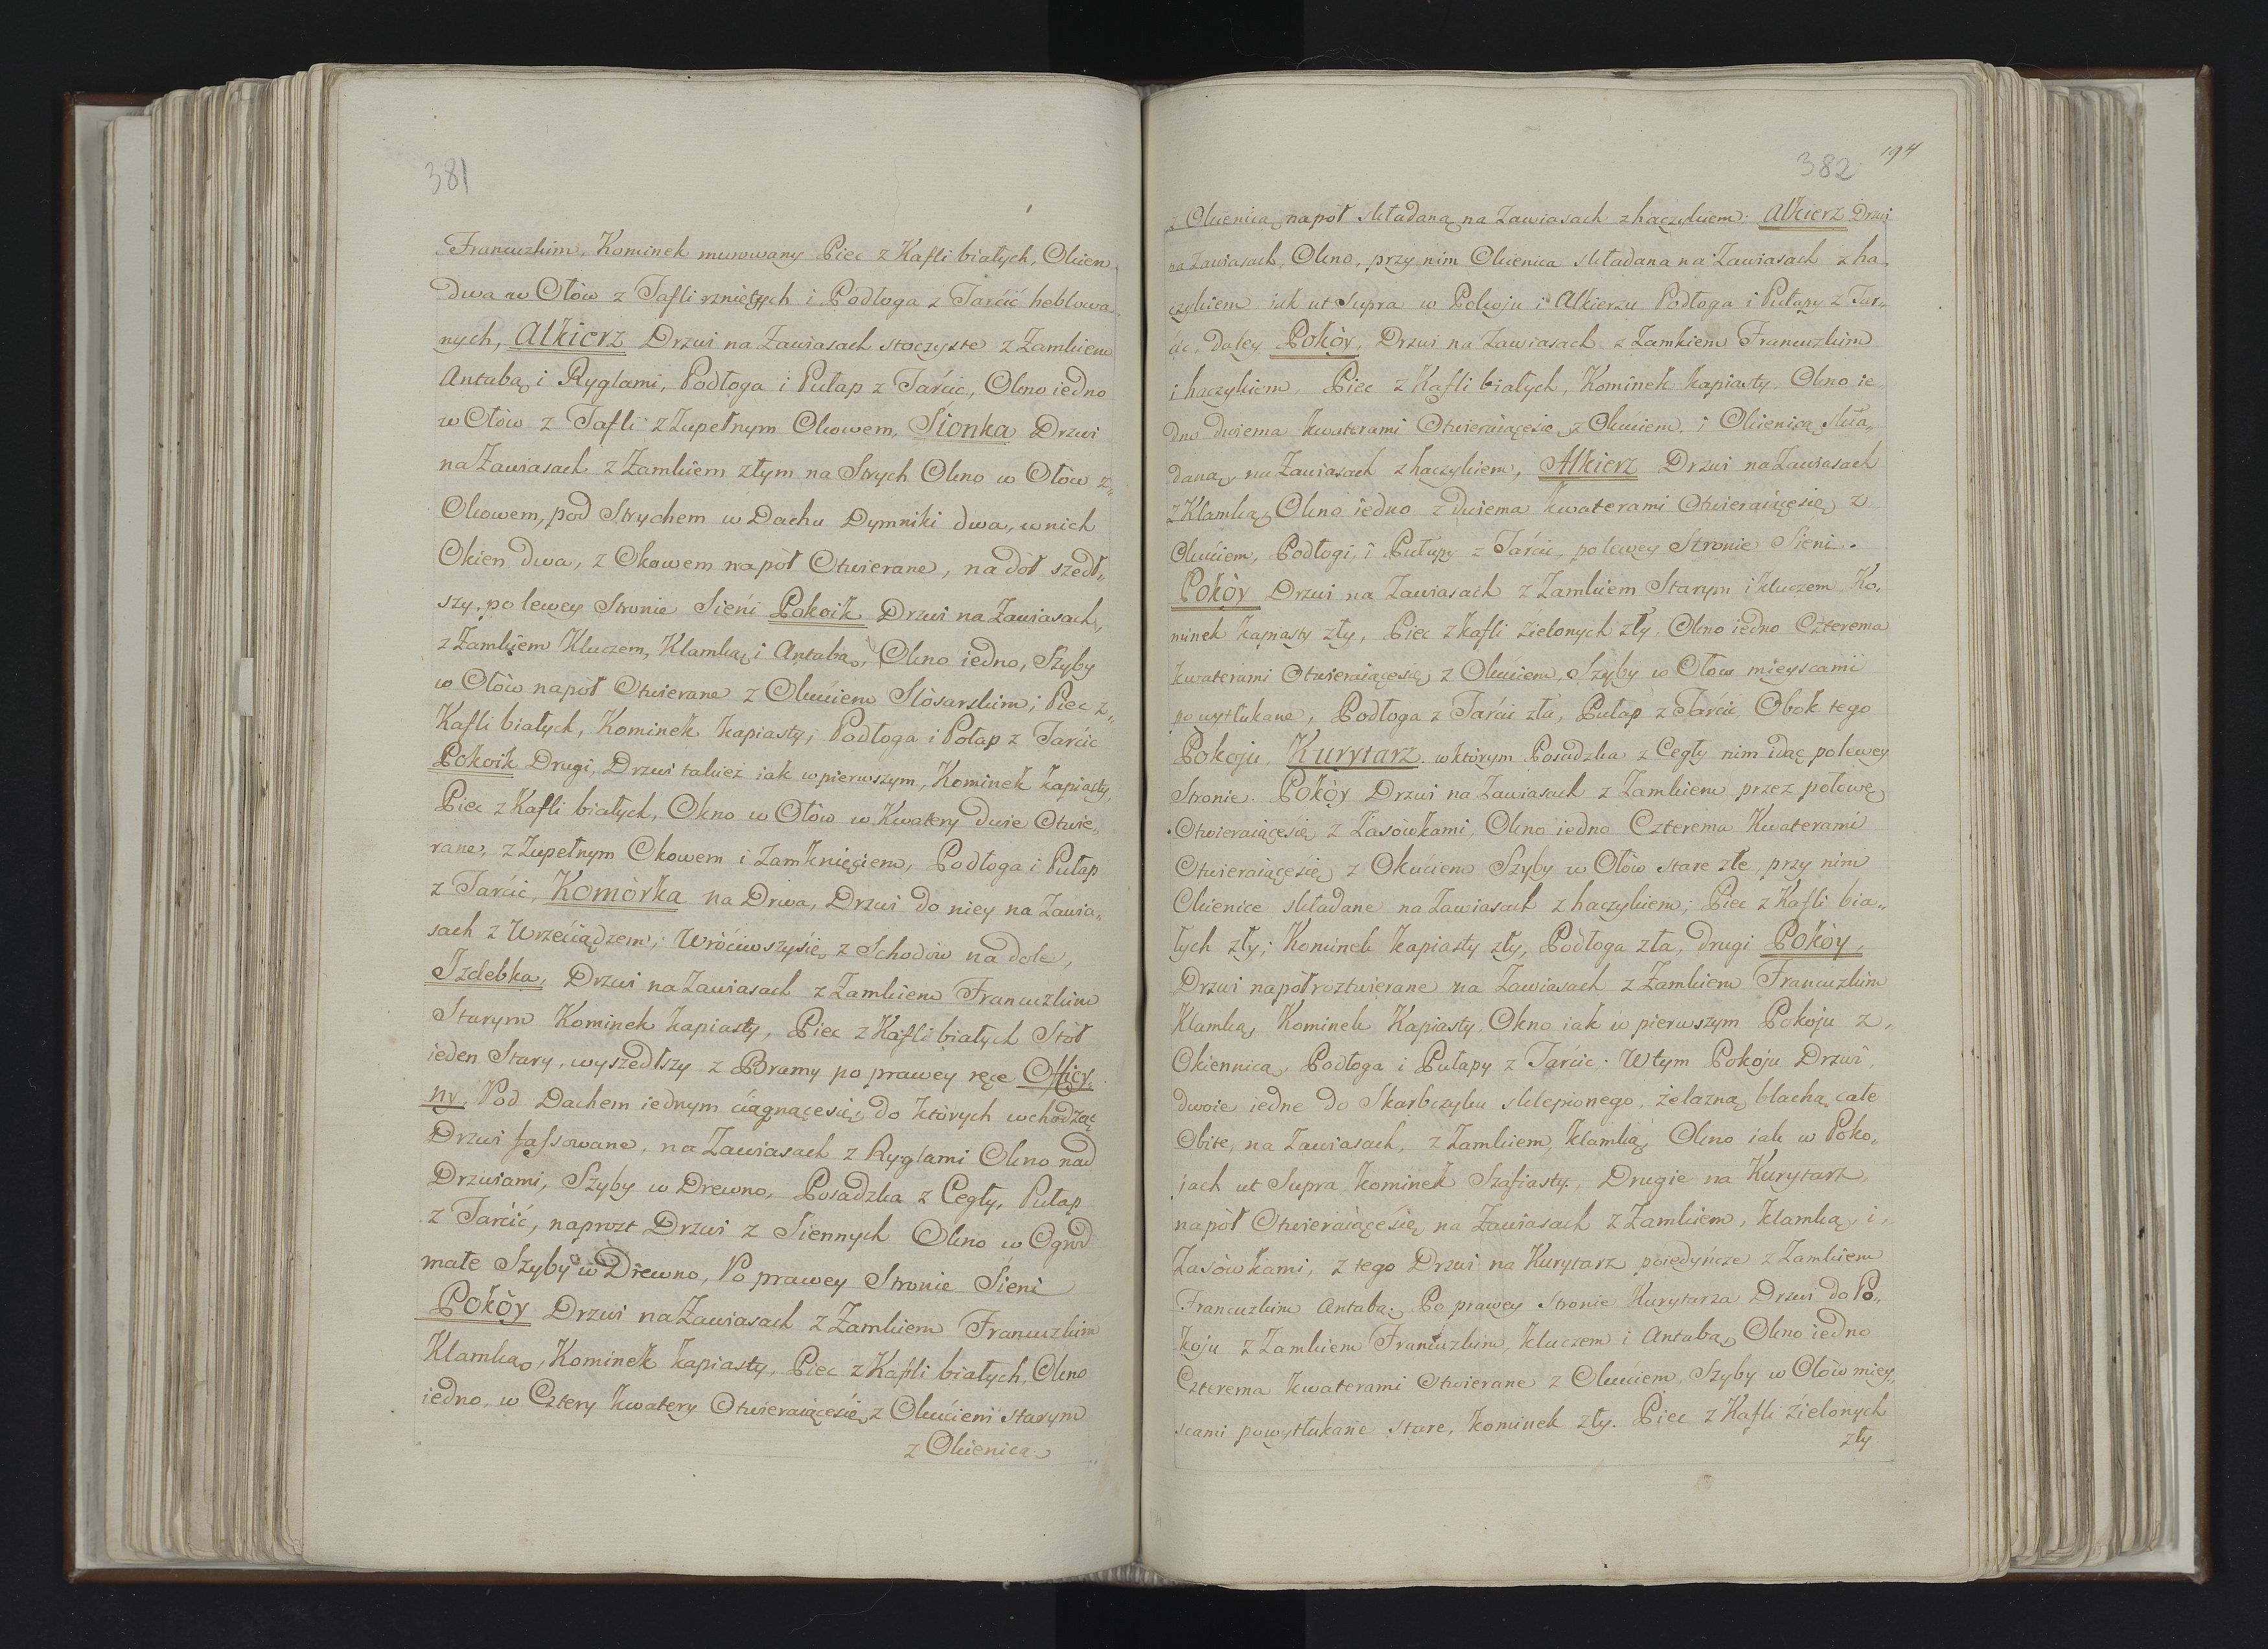 381
Francuzkim, Kominek murowany Piec z Kafli białych, Okien
dwa w Ołów z Tafli rzniętych i Podłoga z Tarćić heblowa„
nych, Alkierz Drzwi na Zawiasach stoczyste z Zamkiem
Antabą i Ryglami, Podłoga i Pułap z Tarćic, Okno iedno
w Ołów z Tafli z Zupełnym Okowem, Sionka Drzwi
na Zawiasach z Zamkiem złym na Strych Okno w Ołów z„
Okowem, pod Strychem w Dachu Dymniki dwa, w nich
Okien dwa, z Okowem napół Otwierane, na dół szedł„
szy, po lewey Stronie Sieńi Pokoik Drzwi na Zawiasach,
z Zamkiem Kluczem, Klamką i Antabą, Okno iedno, Szyby
w Ołów napół Otwierane z Okuciem Slósarskim; Piec z„
Kafli białych, Kominek kapiasty; Podłoga i Połap z Tarćic
Pokoik Drugi, Drzwi takież iak w pierwszym, Kominek kapiasty,
Piec z Kafli białych, Okno w Ołów w Kwatery dwie Otwie„
rane, z Zupełnym Okowem i Zamknięciem, Podłoga i Pułap
z Tarćic, Komòrka na Drwa, Drzwi do niey na Zawia„
sach z Wrzeciądzem; Wróciwszysię z Schodów na dole,
Izdebka, Drzwi na Zawiasach z Zamkiem Francuzkim
Starym Kominek kapiasty, Piec z Kafli białych Stół
ieden Stary, wyszedłszy z Bramy po prawey ręce Officy„
ny, Pod Dachem iednym ciągnącesię, do których wchodząc
Drzwi fassowane, na Zawiasach z Ryglami Okno nad
Drzwiami, Szyby w Drewno, Posadzka z Cegły, Pułap
z Tarćić, naprozt Drzwi z Siennych Okno w Ogrod
małe Szyby w Drewno, Po prawey Stronie Sieni
Pokòy Drzwi na Zawiasach z Zamkiem Francuzkim
Klamką, Kominek kapiasty, Piec z Kafli białych, Okno
iedno, w Cztery kwatery Otwieraiącesię z Okućiem starym
z Okienicą
382 194
z Okienicą napół składaną na Zawiasach z haczykiem. Alkierz Drzwi
na Zawiasach, Okno, przy nim Okienica składana na Zawiasach z ha„
czykiem iak ut Supra w Pokoju i Alkierzu Podłoga i Pułapy z Tar„
ćic, daley Pokòy, Drzwi na Zawiasach z Zamkiem Francuzkim
i haczykiem, Piec z Kafli białych, Kominek kapiasty, Okno ie„
dno dwiema kwaterami Otwieraiącesię z Okuciem, i Okienicą skła„
daną na Zawiasach z haczykiem, Alkierz Drzwi na Zawiasach
z Klamką, Okno iedno z dwiema kwaterami Otwieraiącesię z
Okuciem, Podłogi, i Pułapy z Tarćic, po lewey Stronie Sieni.
Pokòy Drzwi na Zawiasach z Zamkiem Starym i kluczem Ko„
minek kapiasty zły, Piec z kafli Zielonych zły, Okno iedno Czterema
kwaterami Otwieraiącesię z Okuciem, Szyby w Ołow mieyscami
powytłukane, Podłoga z Tarćic zła, Pułap z Tarćic Obok tego
Pokoju, Kurytarz, w którym Posadzka z Cegły nim idąc po lewey
Stronie. Pokòy Drzwi na Zawiasach z Zamkiem przez połowę
Otwieraiącesię z Zasówkami, Okno iedno Czterema Kwaterami
Otwieraiącesię z Okuciem Szyby w Ołów stare złe, przy nim
Okienice składane na Zawiasach z haczykiem; Piec z Kafli bia„
łych zły; Kominek kapiasty zły, Podłoga zła, drugi Pokòy,
Drzwi napół roztwierane na Zawiasach z Zamkiem Francuzkim
Klamką, Kominek Kapiasty, Okno iak w pierwszym Pokoju z„
Okiennicą, Podłoga i Pułapy z Tarćic; W tym Pokoju Drzwi,
dwoie iedne do Skarbczyku sklepionego, żelazną blachą całe
Obite, na Zawiasach, z Zamkiem, klamką, Okno iak w Poko„
jach ut Supra, kominek Szafiasty, Drugie na Kurytarz,
napół Otwieraiącesię na Zawiasach z Zamkiem, klamką, i„
Zasòwkami, z tego Drzwi na Kurytarz poiedyńcze z Zamkiem
Francuzkim Antabą, Po prawey stronie Kurytarza Drzwi do Po„
koju z Zamkiem Francuzkim, kluczem i Antabą, Okno iedno
Czterema kwaterami Otwierane z Okuciem, Szyby w Ołów miey„
scami powytłukane stare, kominek zły. Piec z Kafli Zielonych
zły